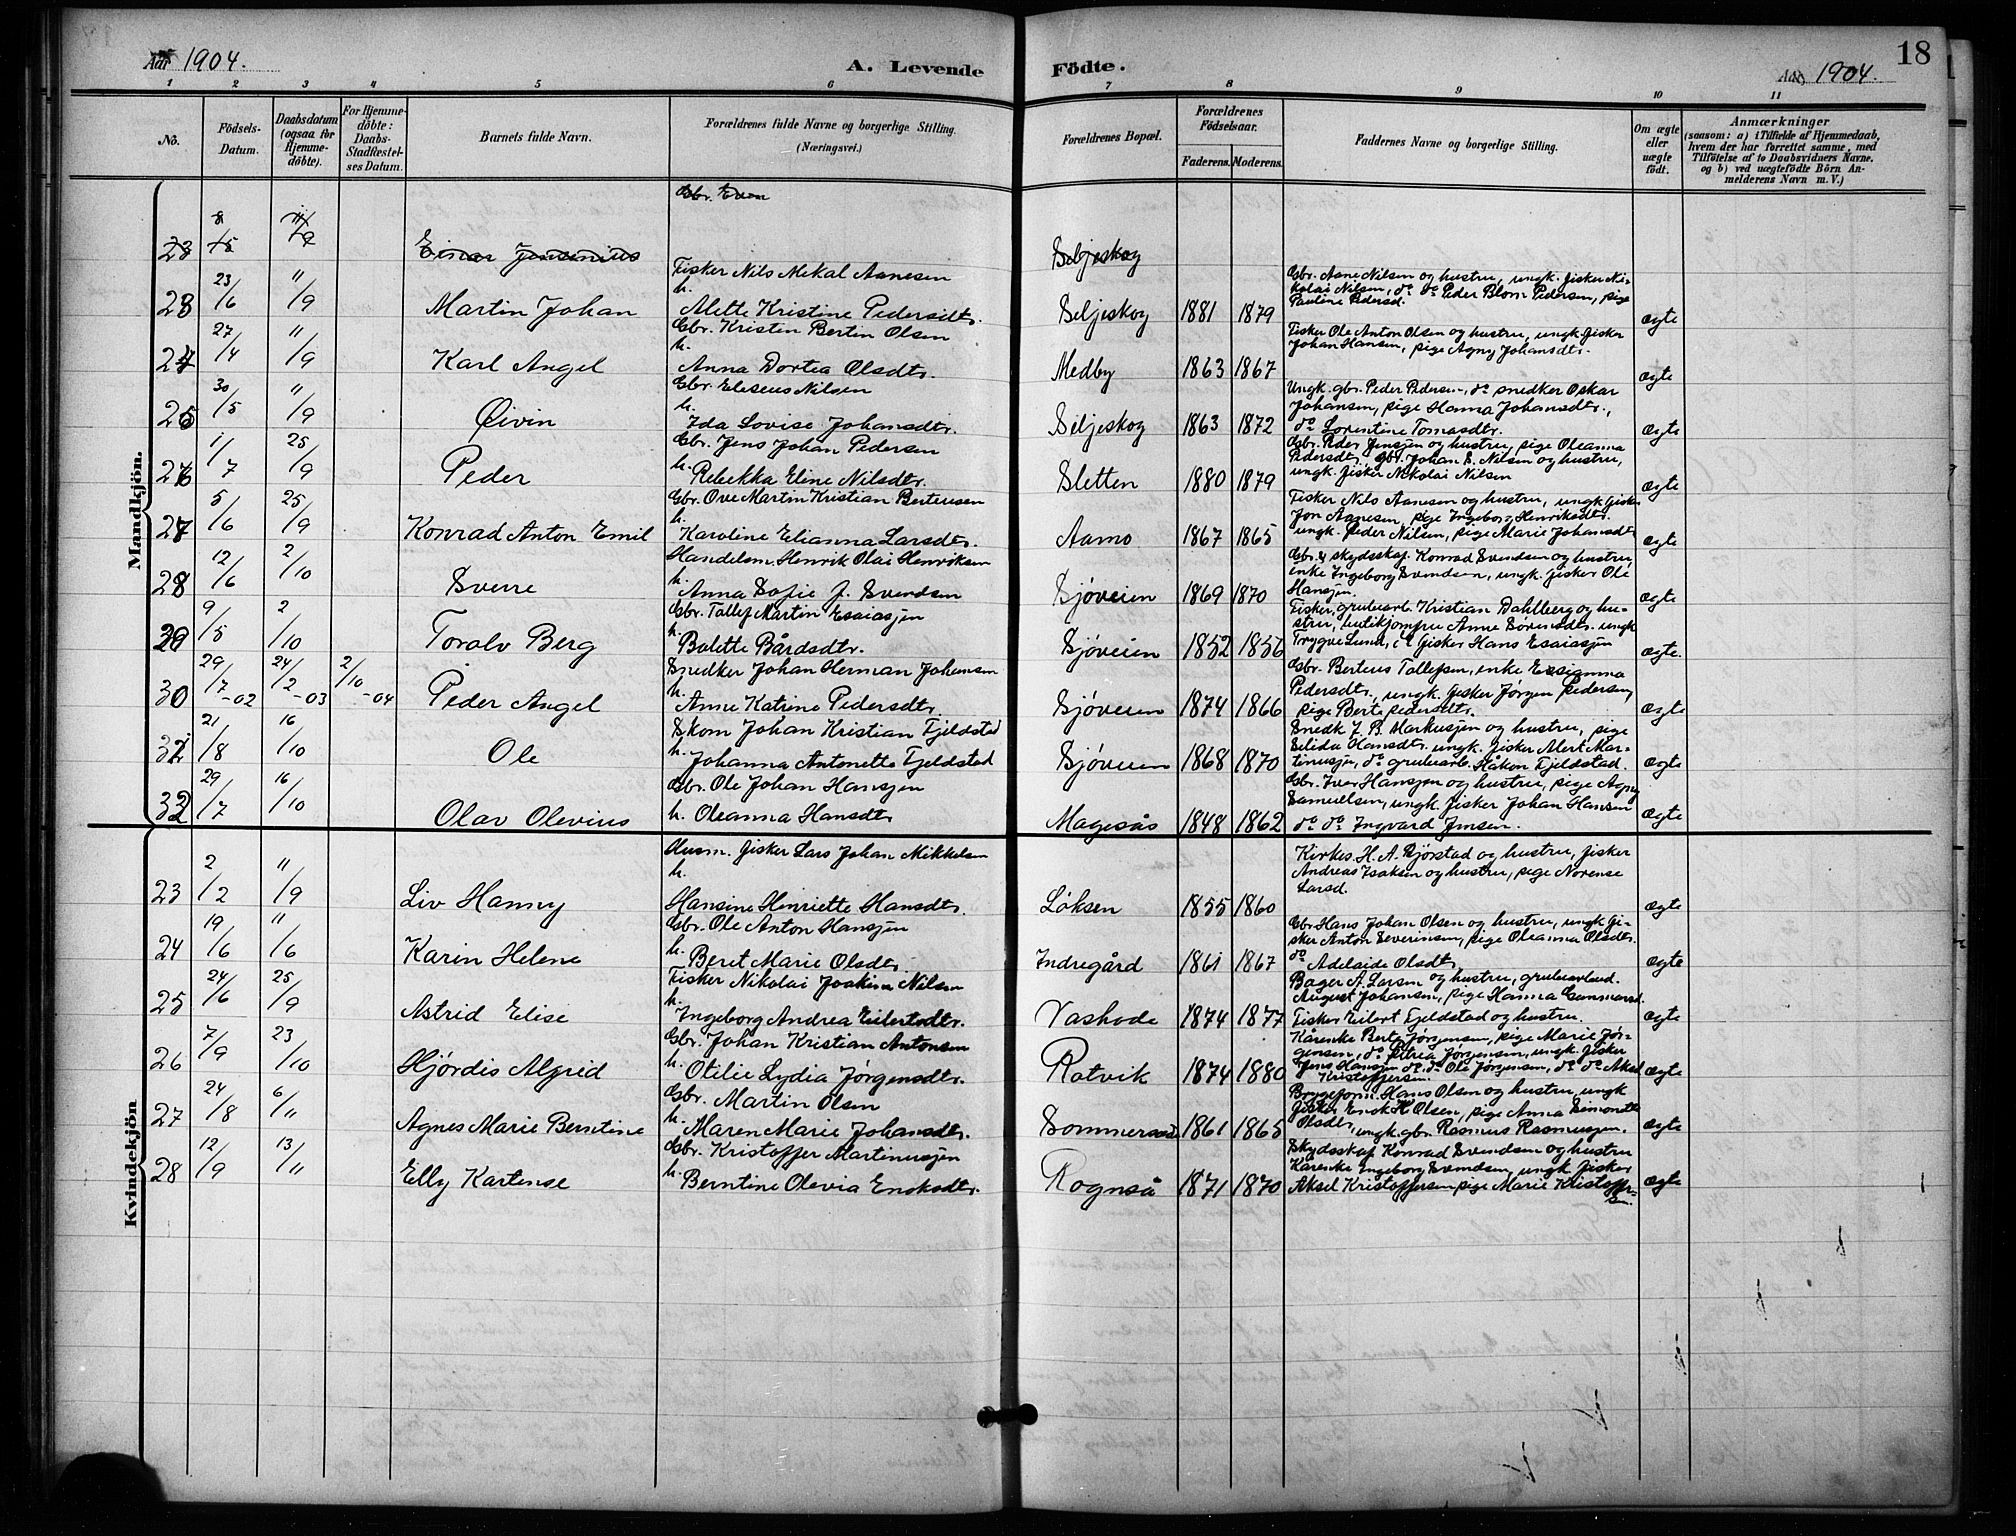 Aar 1904.
A. Levende
Födte.
Aar 1904.
18
1 2 3 4 5 6 7 8 9 10 11
No.
Födsels-Datum.
Daabsdatum (ogsaa for Hjemmedöbte).
For Hjemmedöbte: Daabs-Stadfæstelses Datum.
Barnets fulde Navn.
Forældrenes fulde Navne og borgerlige Stilling.
(Næringsvei.)
Forældrenes Bopæl.
Forældrenes Födselsaar.
Faderens. Moderens.
Faddernes Navne og borgerlige Stilling.
Om ægte eller uægte födt.
Anmærkninger
(saasom: a) i Tilfælde af Hjemmedaab, hvem der har forrettet samme, med Tilföielse af to Daabsvidners Navne, og b) ved uægtefödte Börn Anmelderens Navn m. V.)
Mandkjön.
Gbr. Even
23 Einar Jensenius Seljeskog
23 23/6 11/9 Martin Johan
Fisker Nils Mekal Aanesen
h. Alette Kristine Pedersdtr.
Seljeskog 1881 1879
Gbr. Aane Nilsen og hustru, ungk. fisker Nikolai Nilsen, do do Peder Blom Pedersen, pige
Pauline Pedersd. ægte
24 27/4 11/9 Karl Angel
Gbr. Kristen Bertin Olsen
h. Anna Dortea Olsdtr.
Medby 1863 1867
Fisker Ole Anton Olsen og hustru, ungk. fisker
Johan Hansen, pige Agny Johansdtr. ægte
25 30/5 11/9 Øivin
Gbr. Eliseus Nilsen
h. Ida Lovise Johansdtr.
Seljeskog 1863 1872
Ungk. gbr. Peder Pedersen, do snedker Oskar
Johansen, pige Hanna Johansdtr.,
do Lorentine Tomasdtr. ægte
26 1/7 25/9 Peder
Gbr. Jens Johan Pedersen
h. Rebekka Eline Nilsdtr.
Sletten 1880 1879
Gbr. Peder Jensen og hustru, pige Oleanna
Pedersdtr. gbr. Johan S. Nilsen og hustru,
ungk. fisker Nikolai Nilsen ægte
27 5/6 25/9 Konrad Anton Emil
Gbr. Ove Martin Kristian Berteusen
h. Karoline Elianna Larsdtr.
Aamo 1867 1865
Fisker Nils Aanesen og hustru, ungk. fisker
Jon Aanesen, pige Ingeborg Henriksdtr.
ungk. Peder Nilsen, pige Marie Johansdtr ægte
28 12/6 2/10 Sverre
Handelsm. Henrik Olai Henriksen
h. Anna Sofie f. Svendsen
Sjøveien 1869 1870
Gbr. & skydsskaf. Konrad Svendsen og hustru,
enke Ingeborg Svendsen, ungk. fisker Ole
Hansen. ægte
29 9/5 2/10 Toralv Berg
Gbr. Tallef Martin Esaiassen
h. Balette Bårdsdtr.
Sjøveien 1852 1856
Fisker, grubearb. Kristian Dahlberg og hustru, butikjomfru Anne Sørensdtr. ungk
Trygve Lund, fisker Hans Esaiassen ægte.
30 29/7-02 24/2-03 2/10-04 Peder Angel
Snedker Johan Herman Johansen
h. Anne Katrine Pedersdtr.
Sjøveien 1874 1866
Gbr. Berteus Tallefsen, enke Esianna
Pedersdtr., ungk. fisker Jørgen Pedersen,
pige Berte Pedersdtr. ægte
31 21/8 16/10 Ole
Skom Johan Kristian Fjeldstad
h. Johanna Antonette Fjeldstad
Sjøveien 1868 1870
Snedk J. B. Markussen og hustru, pige
Selida Hansdtr. ungk. fisker Alert Martinussen, do grubearb. Håkon Fjeldstad. ægte
32 29/7 16/10 Olav Olevius
Gbr. Ole Johan Hansen
h. Oleanna Hansdtr
Magesås 1848 1862
Gbr. Iver Hansen og hustru, pige Agny
Samuelsen, ungk. fisker Johan Hansen
do do Ingvard Jensen. ægte
Kvindekjön
23 2/2 11/9 Liv Hanny
Husm. fisker Lars Johan Mikkelsen
h. Hansine Henriette Hansdtr.
Løksen 1855 1860
Kirkes. H. A. Bjørstad og hustru, fisker
Andreas Isaksen og hustru, pige Norense
Larsd. ægte
24 19/6 11/6 Karin Helene
Gbr. Ole Anton Hansen
h. Beret Marie Olsdtr.
Indregård 1861 1867
Gbr. Hans Johan Olsen og hustru, ungk. fisker Anton Severinsen, pige Oleanna Olsdtr.
do Adelaide Olsdtr ægte
25 24/6 25/9 Astrid Elise
Fisker Nikolai Joakim Nilsen
h. Ingeborg Andrea Eilertsdtr.
Vashode 1874 1877
Bager A. Larsen og hustru, grubearbeid.
August Johansen, pige Hanna Gunnarsd.
Fisker Eilert Fjeldstad og hustru. ægte
26 7/9 23/10 Hjørdis Alfrid
Gbr. Johan Kristian Antonsen
h. Otilie Lydia Jørgensdtr.
Rotvik 1874 1880
Kårenke Berte Jørgensen, pige Marie Jørgensen, do Petrea Jørgensen, ungk. fisker
Jens Hansen do do Ole Jørgensen, do do Aksel
Kristoffersen. ægte
27 24/8 6/11 Agnes Marie Berntine
Gbr. Martin Olsen
h. Maren Marie Johansdtr.
Sommersæt 1861 1865
Bryggeform. Hans Olsen og hustru, ungk
fisker Enok H. Olsen, pige Anna Simonette
Olsdtr, ungk. gbr. Rasmus Rasmussen. ægte
28 12/9 13/11 Elly Kartense
Gbr. Kristoffer Martinussen
h. Berntine Olevia Enoksdtr.
Rognså 1871 1870
Skydsskaf Konrad Svendsen og hustru
Kårenke Ingeborg Svendsen, ungk fisker
Aksel Kristoffersen pige Marie Kristoffersen. ægte